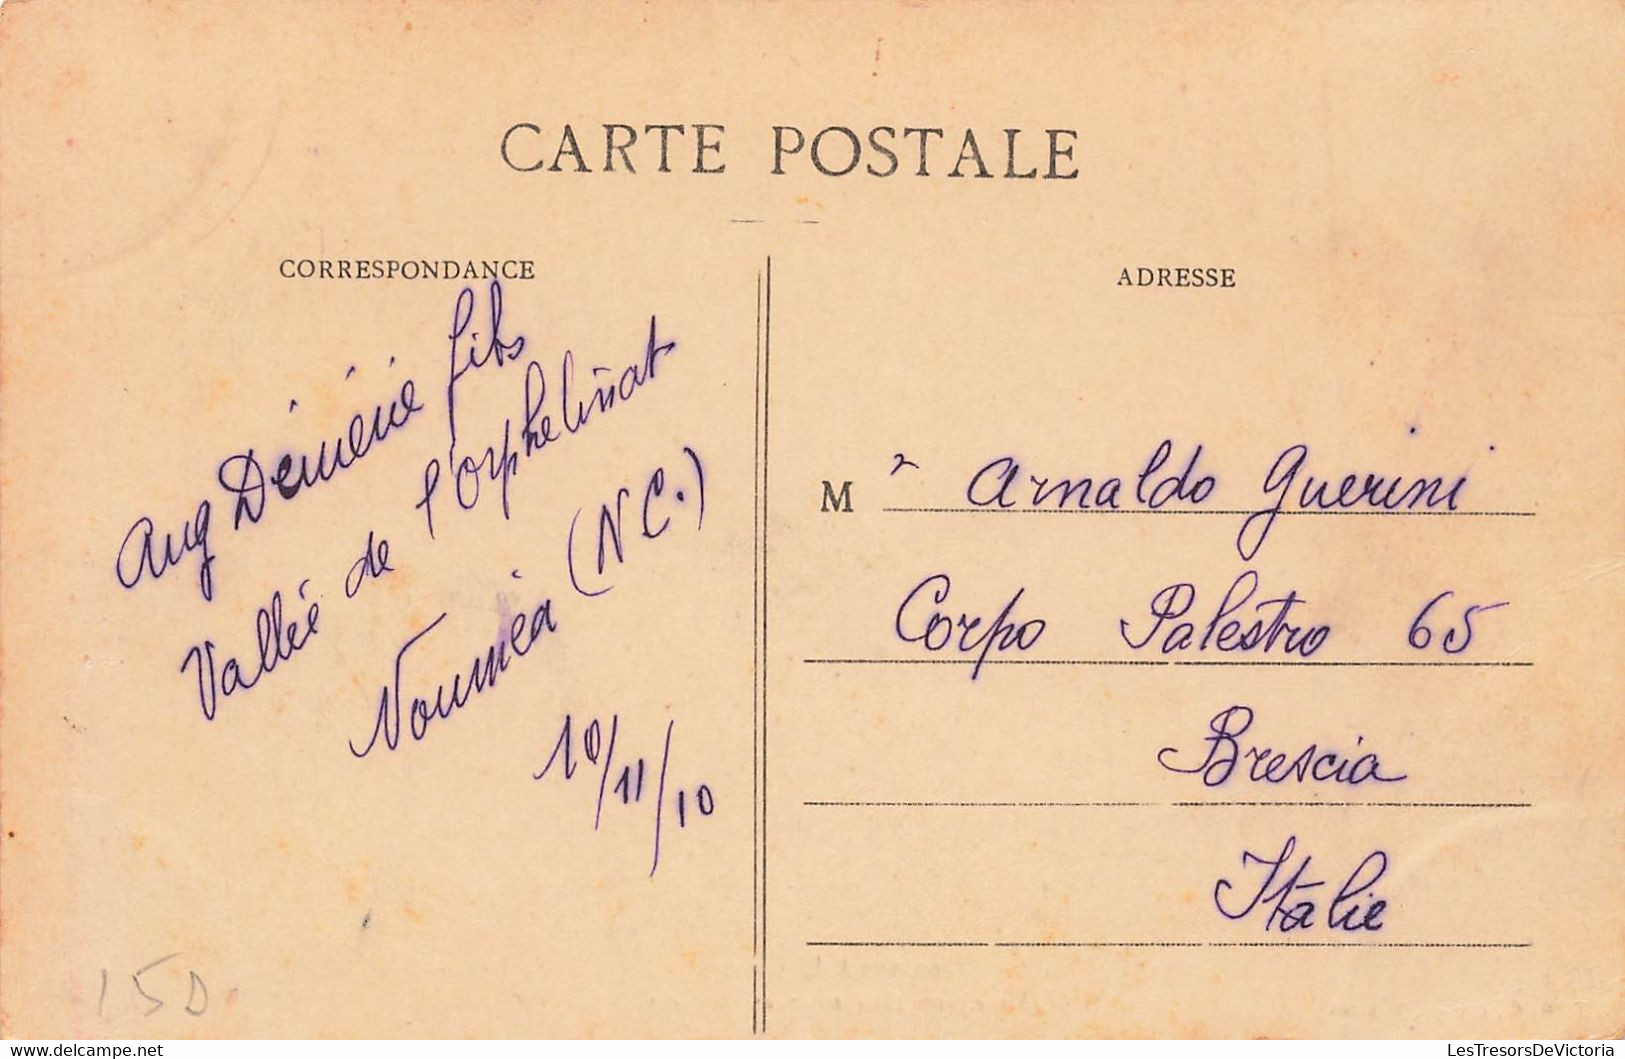 CARTE POSTALE
CORRESPONDANCE
Aug Déménè fils
Vallée de l'orphelinat
Nouméa (N C.)
10/11/10
15D
ADRESSE
M r Arnaldo Guerini
Corpo Palestro 65
Brescia
Italie
LesTresorsDeVictoria